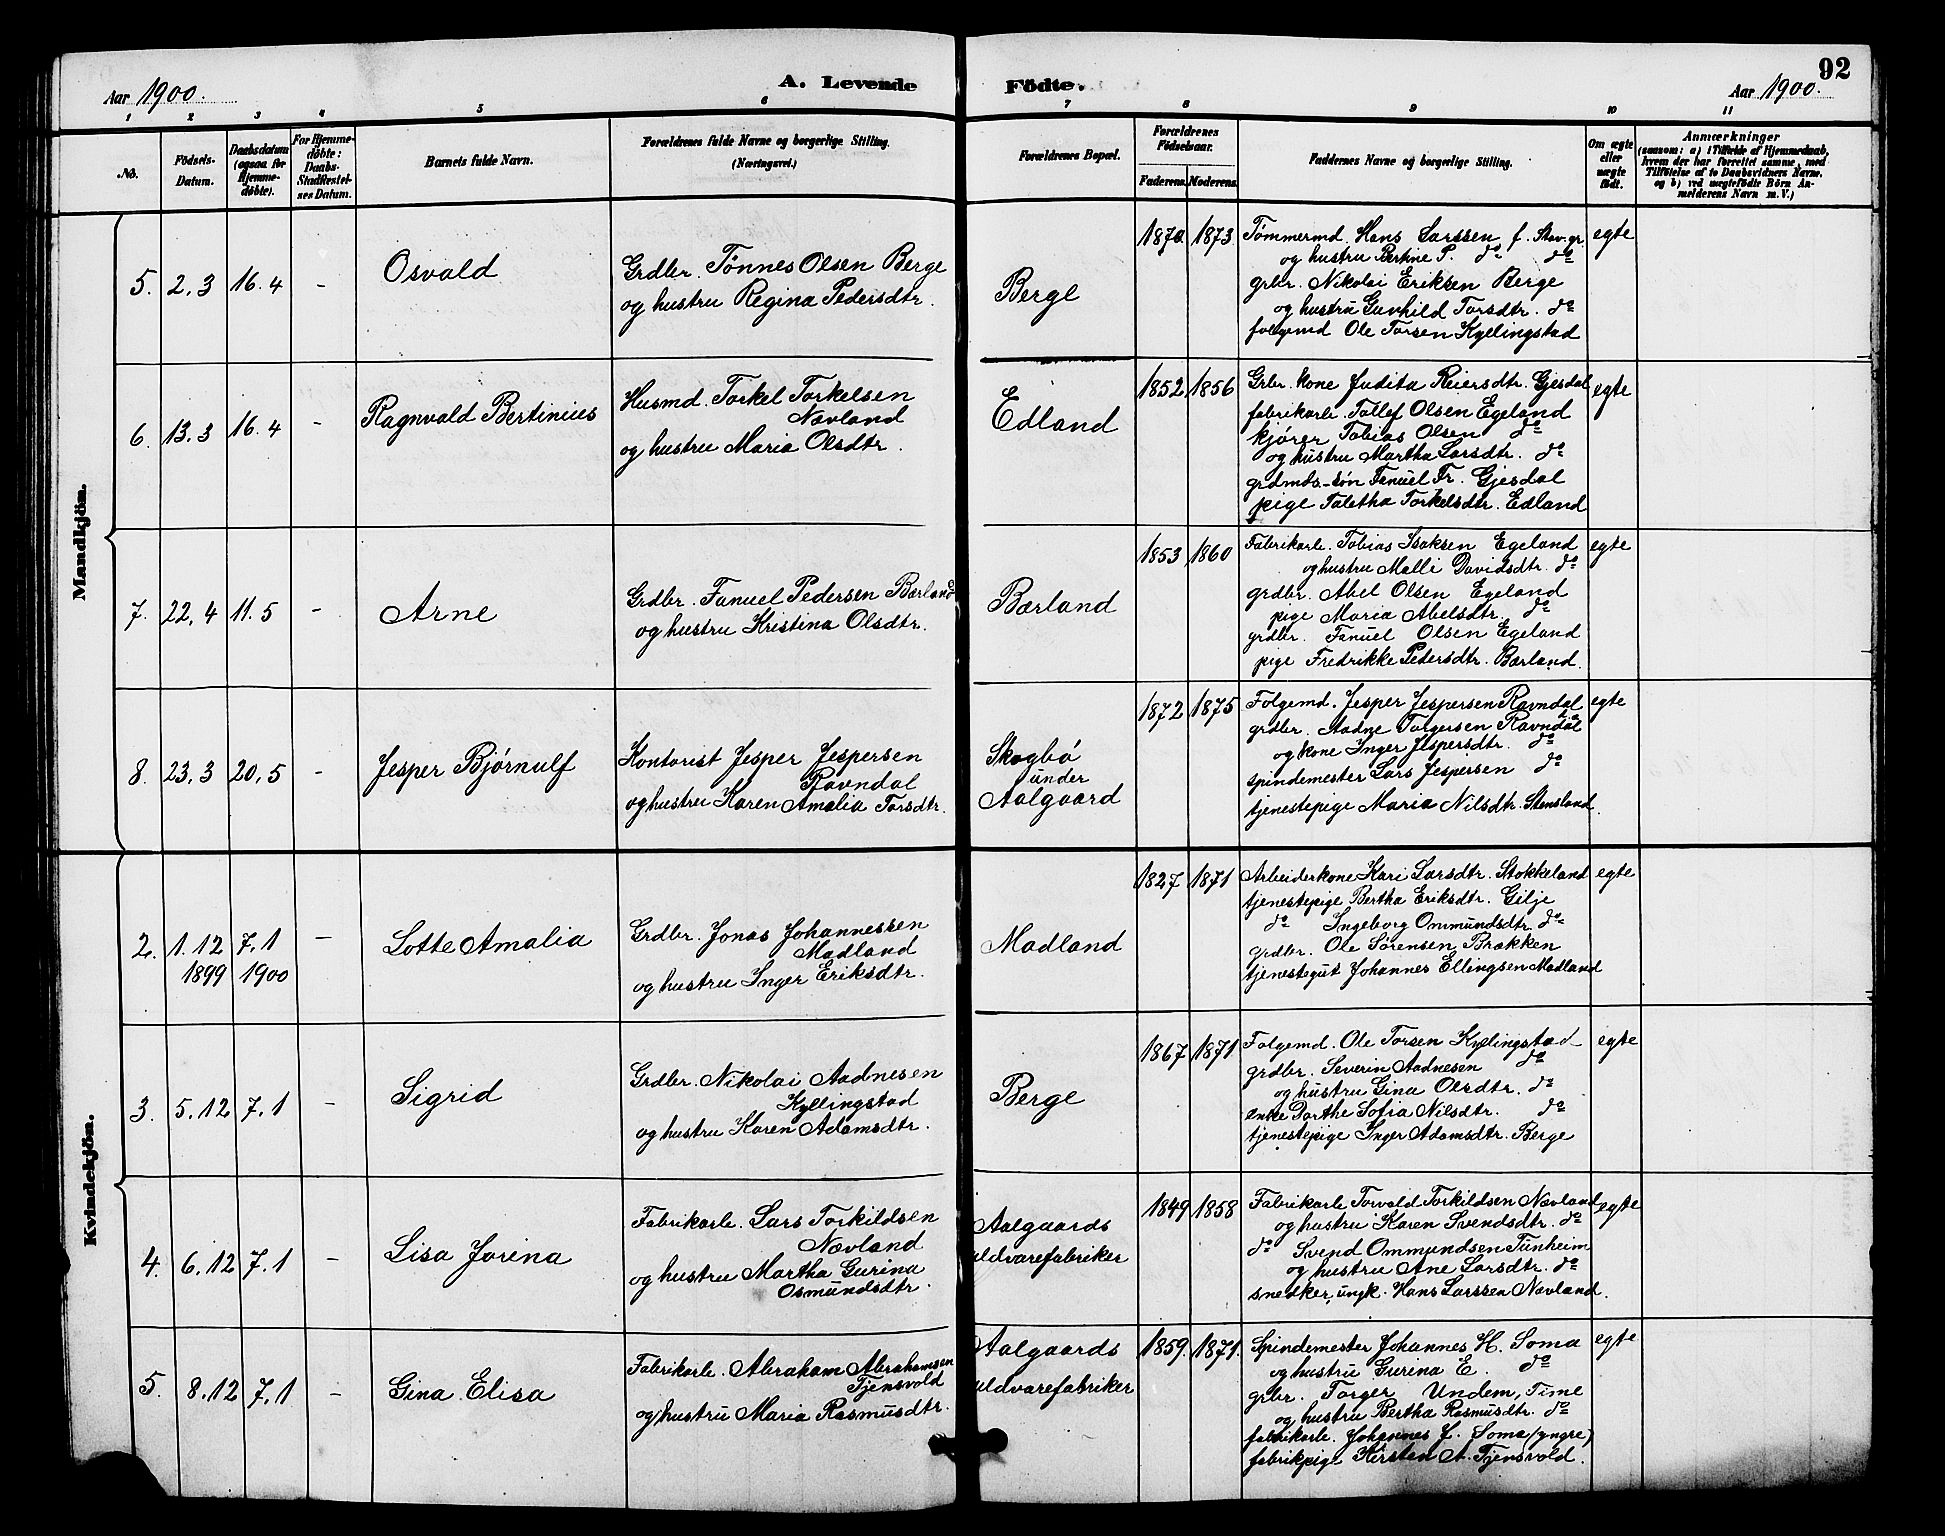 92
Aar 1900. A. Levende Födte. Aar 1900.
1 2 3 4 5 6 7 8 9 10 11
No.
Födsels-
Datum.
Daabsdatum
(ogsaa for
Hjemme-
döbte).
For Hjemme-
döbte:
Daabs-
Stadfæstel-
ses Datum.
Barnets fulde Navn.
Forældrenes fulde Navne og borgerlige Stilling.
(Næringsvei.)
Forældrenes Bopæl.
Forældrenes
Födselsaar.
Faderens. Moderens.
Faddernes Navne og borgerlige Stilling.
Om ægte
eller
uægte
födt.
Anmærkninger
(saasom: a) i Tilfælde af Hjemmedaab,
hvem der har forrettet samme, med
Tilföielse af to Daabsvidners Navne,
og b) ved uægtefödte Börn An-
melderens Navn m. V.)
Mandkjön.
5. 2.3 16.4 -
Osvald
Grdbr. Tönnes Olsen Berge
og hustru Regina Pedersdtr.
Berge
1870. 1873.
Tømmermd. Hans Larssen f. Stav.gr.
og hustru Bertine P. do do
grbr. Nikolai Eriksen Berge
og hustru Gunhild Torsdtr. do
folgemd Ole Torsen Kyllingstad
egte
6. 13.3 16.4 -
Ragnvald Bertinius
Husmd. Torkel Torkelsen
Nævland
og hustru Maria Olsdtr.
Edland
1852 1856
Grbr. kone Judita Reiersdtr. Gjesdal
fabrikarb. Tollef Olsen Egeland
kjører Tobias Olsen do
og hustru Martha Larsdtr. do
grdmds.-søn Fanuel Fr. Gjesdal
pige Taletha Torkelsdtr. Edland
egte
7. 22.4 11.5 -
Arne
Grdbr. Fanuel Pedersen Bærland
og hustru Kristina Olsdtr.
Bærland
1853 1860
Fabrikarb. Tobias Isaksen Egeland
og hustru Malli Davidsdtr. do
grdbr. Abel Olsen Egeland
pige Maria Abelsdtr. do
grdbr. Fanuel Olsen Egeland
pige Fredrikke Pedersdtr. Bærland.
egte
8. 23.3 20.5 -
Jesper Bjørnulf
Kontorist Jesper Jespersen
Ravndal
og hustru Karen Amalia Torsdtr.
Skogbø
under
Aalgaard
1872 1875
Folgemd. Jesper Jespersen Ravndal
grdbr. Aadne Torgersen Ravndal
og kone Inger Jespersdtr. do
spindemester Lars Jespersen do
tjenestepige Maria Nilsdtr. Stensland.
egte
Kvindekjön.
2. 1.12 7.1 -
1899 1900
Lotte Amalia
Grdbr. Jonas Johannessen
Madland
og hustru Inger Eriksdtr.
Madland
1827 1871
Arbeiderkone Kari Larsdtr. Stokkeland
tjenestepige Bertha Eriksdtr. Gilje
do Ingeborg Ommundsdtr. do
grdbr. Ole Sørensen Brækken
tjenestegut Johannes Ellingsen Madland
egte
3. 5.12 7.1 -
Sigrid
Grdbr. Nikolai Aadnesen
Kyllingstad
og hustru Karen Adamsdtr.
Berge
1867 1871
Folgemd. Ole Torsen Kyllingstad
grdbr. Severin Aadnesen do
og hustru Gina Olsdtr. do
enke Dorthe Sofia Nilsdtr. do
tjenestepige Inger Adamsdtr. Berge
egte
4. 6.12 7.1 -
Lisa Jorina
Fabrikarb. Lars Torkildsen
Nævland
og hustru Martha Gurina
Osmundsdtr.
Aalgaards
uldvarefabriker
1849 1858
Fabrikarb. Torvald Torkildsen Nævland
og hustru Karen Svendsdtr. do
do Svend Ommundsen Tunheim
og hustru Ane Larsdtr. do
snedker, ungk. Hans Larssen Nævland.
egte
5. 8.12 7.1 -
Gina Elisa
Fabrikarb. Abraham Abrahamsen
Tjensvold
og hustru Maria Rasmusdtr.
Aalgaards
uldvarefabriker
1859. 1871.
Spindemester Johannes H. Soma
og hustru Gurina E. do
grbr. Torger Undem, Time
og hustru Bertha Rasmusdtr. do
fabrikarb. Johannes J. Soma (yngre)
fabrikpige Kirsten A. Tjensvold.
egte